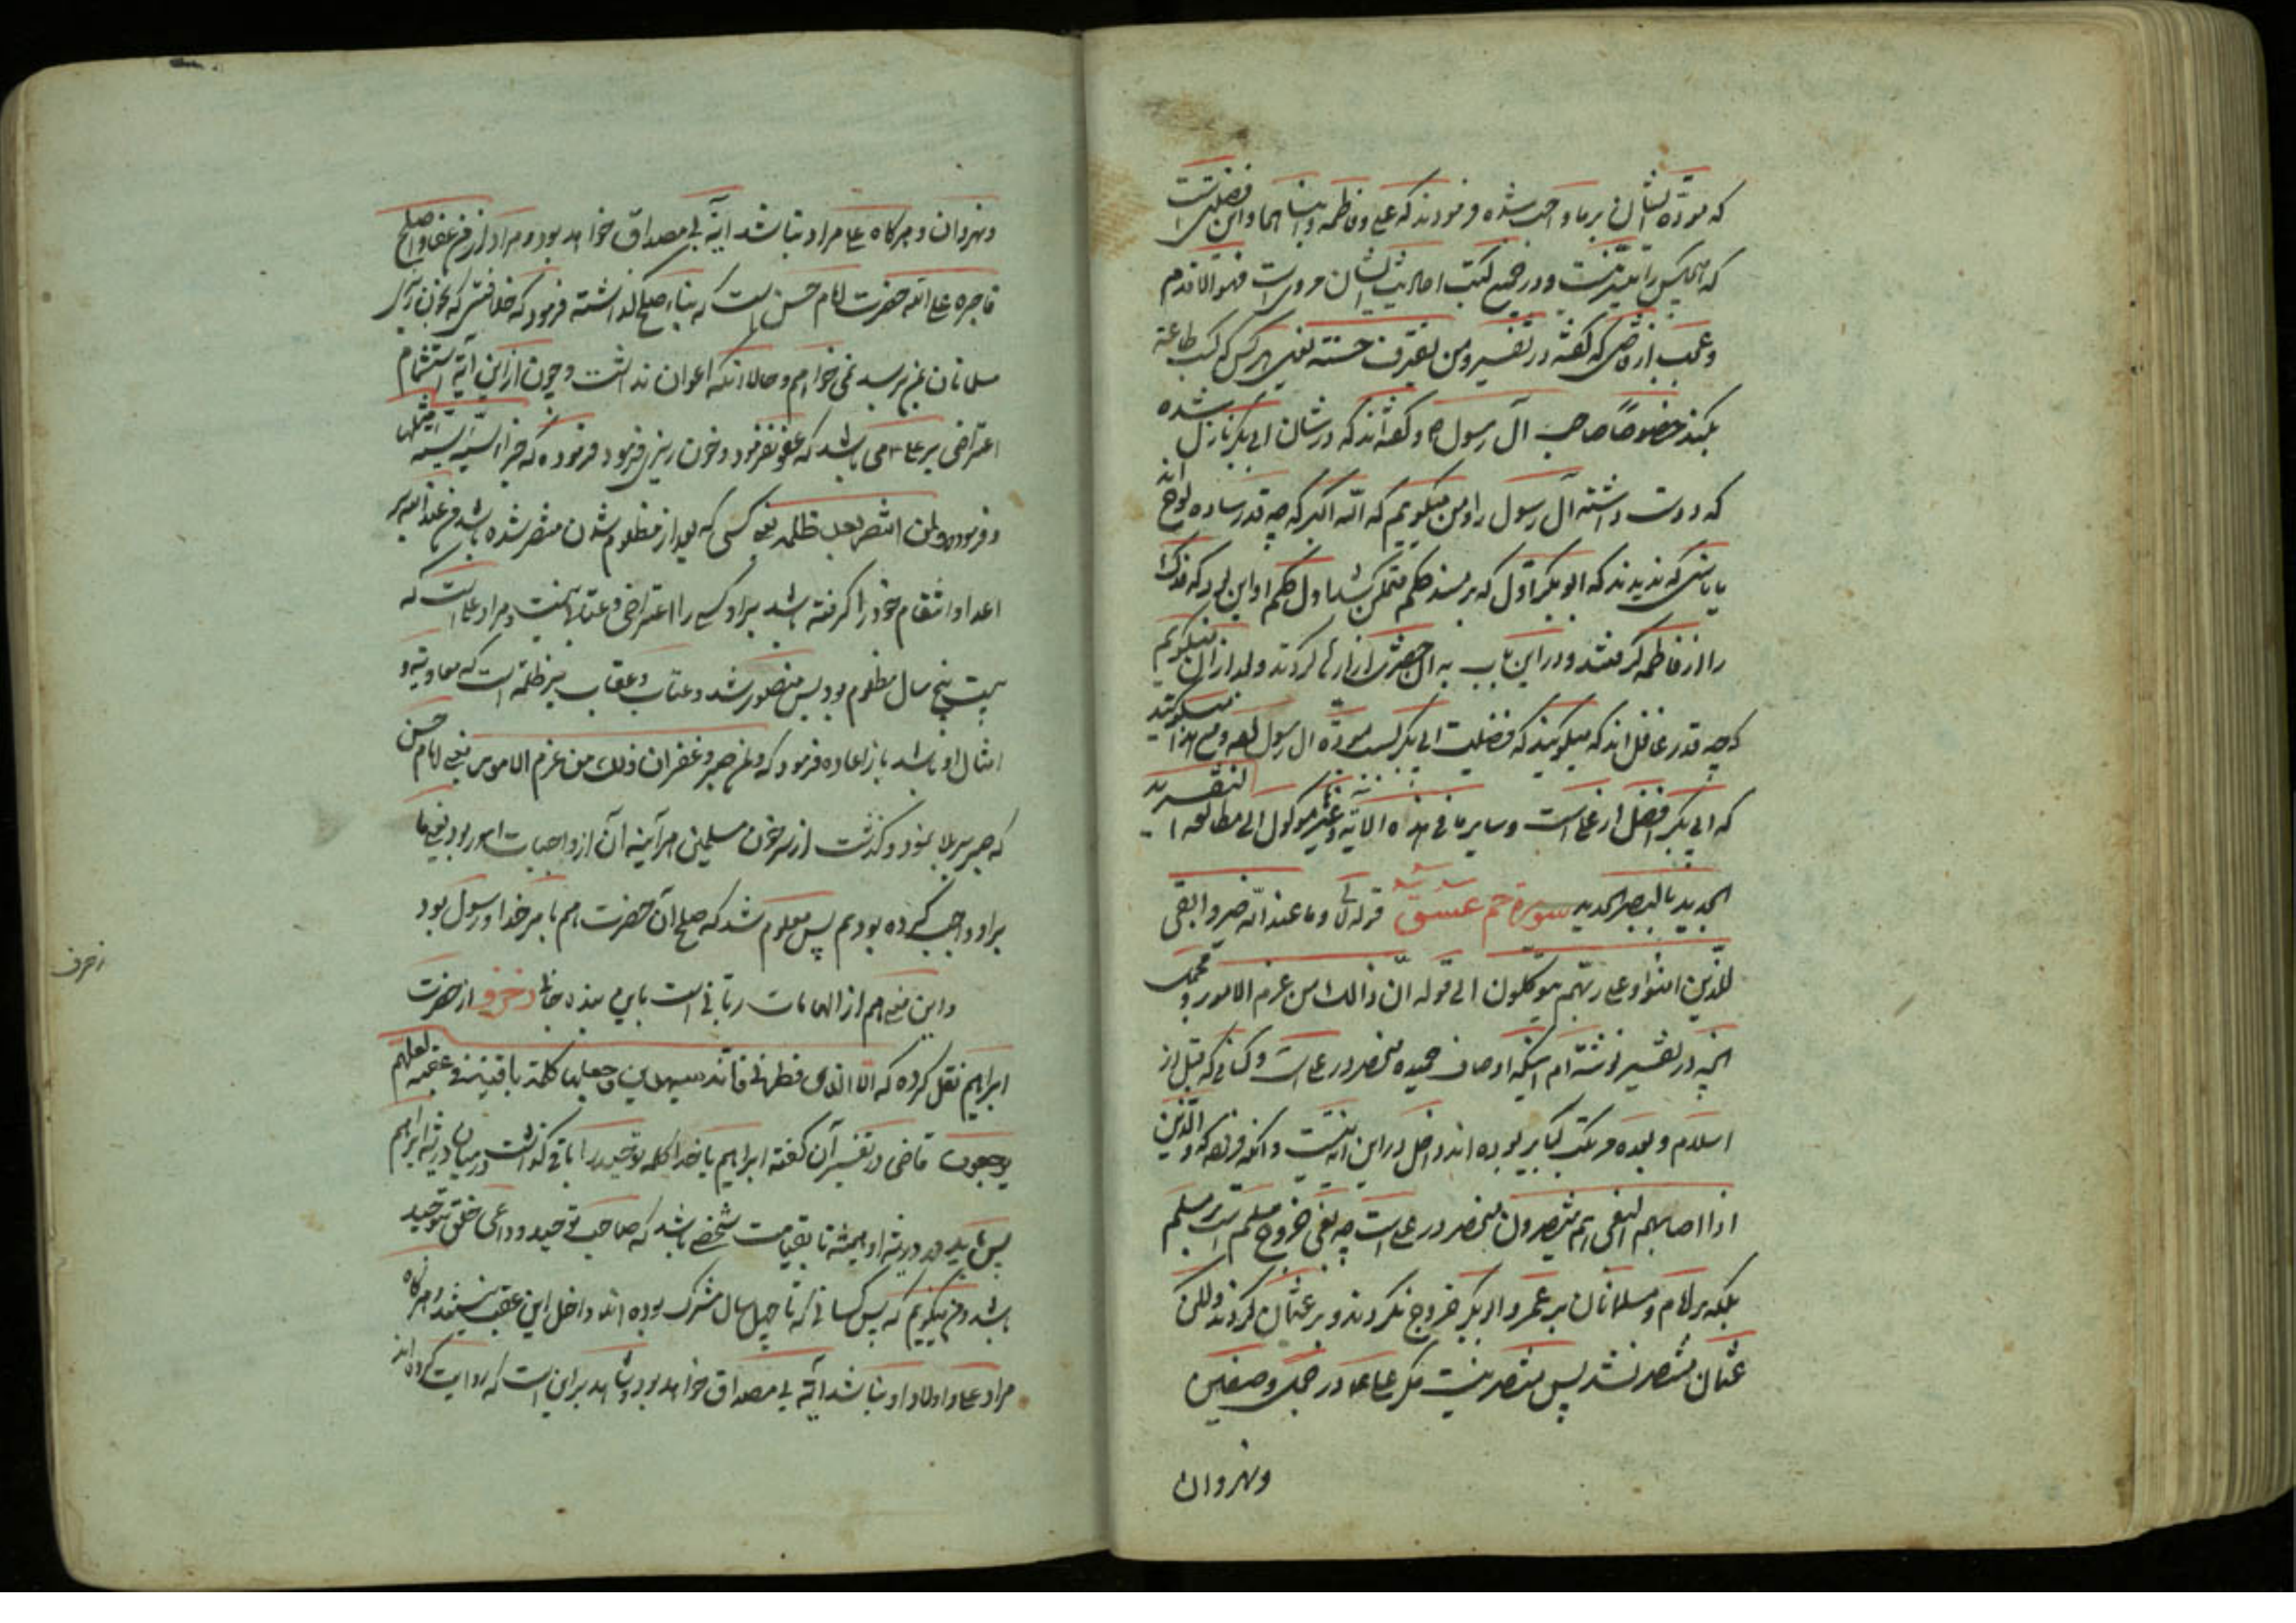 که مودّة ایشان بر ما واجب شده فرمودند که علی و فاطمه و ابناهما و این فضیلتی است
که هیچکس را میسّر نیست و در جمیع کتب احادیث ایشان مرویست فهو الاقدم
و عجب از قاضی که گفته در تفسیر ومن یقترف حسنة یعنی هر کس که کسب طاعة
بکند خصوصًا حب آل رسول و گفته‌اند که در شان ابی بکر نازل شده
که دوست داشته آل رسول را و من میگویم که الله اکبر که چه قدر ساده لوح اند
یا یاسی که ندیدند که ابوبکر اوّل که بر مسند حکم متمکن شد اول حکم او این بود که فدک
را از فاطمه گرفتند و در این باب به آن حضرت آزارها کردند و بعد از آن میگویم
که چه قدر غافل اند که میگویند که فضیلت ابی بکر بسبب مودّة آل رسول بوده و مع هذا میگویند
که ابی بکر افضل از علی است و سایر ما فی هذه الآیة وغیره موکول الی مطالعه التفسیر
الجدید بالبصر الحدید سورة حم عسق قوله تعالی وما عند الله خیر وابقی
للذین امنوا وعلی ربهم یتوکلون الی قوله انّ ذالك من عزم الامور و مجمل
آنچه در تفسیر نوشته‌ام اینکه اوصاف حمیده منحصر در علی است و کسانی که قبل از
اسلام و بعده مرتکب کبایر بوده اند داخل در این آیه نیست و آنکه فرموده که والّذین
اذا اصابهم البغی هم ینتصرون منحصر در علی است چه بغی خروج مسلم است بر مسلم
بلکه بر امام و مسلمانان بر عمر و ابو بکر خروج نکردند و بر عثمان کردند ولکن
عثمان منتصر نشد پس منتصر نیست مگر علی ع در جمل و صفین
ونهروان
ونهروان و هرگاه علی مراد نباشد آیة بی مصداق خواهد بود و مراد از فمن عفا واصلح
فاجره علی الله حضرت امام حسن است که بناء صلح گذاشته فرمود که خلافتی که بخون ریزی
مسلمانان بمن برسد نمی خواهم و حالا آنکه اعوان نداشت و چون از این آیة استشمام
اعتراضی بر علی ع می باشد که عفو نفرمود و خون ریزی فرمود فرموده که جزاء سیّئة سیّئة مثلها
و فرموده ولمن انتصر بعد ظلمه یعنی کسی که بعد از مظلوم شدن منتصر شده باشد
اعدا و انتقام خود را گرفته باشد بر او کسی را اعتراضی و عتاب نیست و مراد علی است که
بیست پنج سال مظلوم بود پس منصور شد و عتاب و عقاب بر ظلمه است که معاویة و
امثال او باشد باز اعاده فرمود که ولمن صبر وغفر ان ذلك من عزم الامور یعنی امام حسن
که صبر بر بلا نمود و گذشت از سر خون مسلمین هر آینه آن از واجبات امور بود یعنی ما
بر او واجب کرده بودیم پس معلوم شد که صلح آن حضرت هم بامر خدا و رسول بود
و این معنی هم از الهامات ربانی است باین بنده جانی زخرف از حضرت
ابراهیم نقل کرده که الا الذی فطرنی فانه سیهدین وجعلها كلمة باقیة فی عقبه لعلهم
یرجعون قاضی در تفسیر آن گفته ابراهیم یا خدا کلمه توحید را باقی گذاشت در میان ذریّه ابراهیم
پس باید در ذریّه او همیشه تا بقیامت شخصی باشد که صاحب توحید و داعی خلق بتوحید
باشد و من میگویم که پس کسانی که تا چهل سال مشرک بوده اند داخل این عقب نیستند و هرگاه
مراد علی و اولاد او نباشد آیة بی مصداق خواهد بود و شاهد بر این است که روایت کرده اند
زخرف